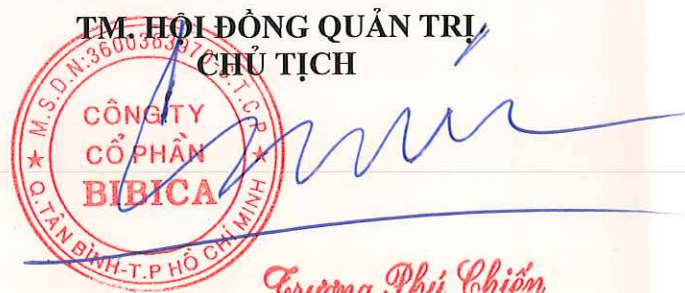 TM. HỘI ĐỒNG QUẢN TRỊ
CHỦ TỊCH
M.S.D.N:3600363970-C.T.C.P
CÔNG TY
CỔ PHẦN
BIBICA
Q.TÂN BÌNH-T.P HỒ CHÍ MINH
Trương Phú Chiến